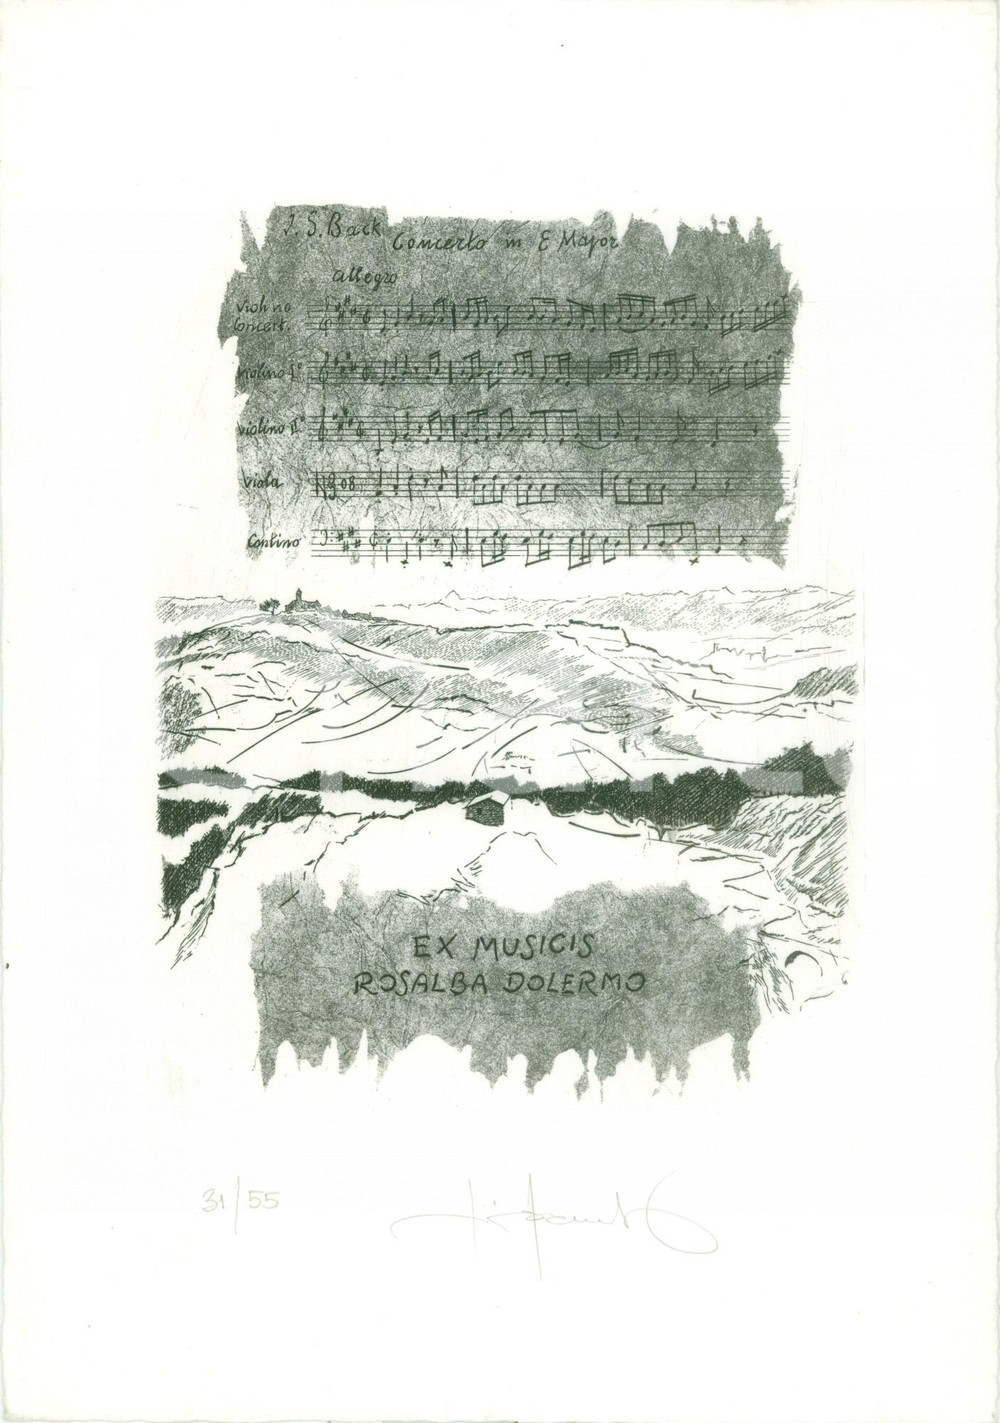 J. S. Back
Concerto in E Major
allegro
Violino
Concert.
Violino I°
Violino II°
Viola
Contino
EX MUSICIS
ROSALBA DOLERMO
31/55